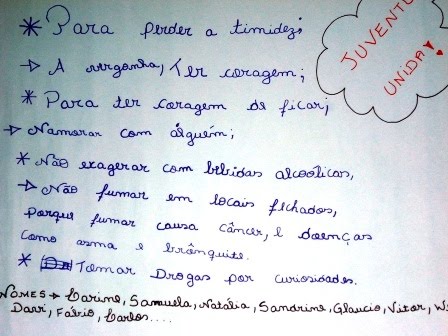 * Para perder a timidez;
JUVENTU
UNIDA!
→ A vergonha, Ter coragem;
* Para ter coragem de ficar;
→ Namorar com álguém;
* Não exagerar com bebidas alcoólicas,
→ Não fumar em locais fechados,
porque fumar causa câncer, e doenças
como asma e brônquite.
* Tomar Drogas por curiosidades.
NOMES → Carine, Samuela, Natália, Sandrine, Glaucio, Vitor, Wi
Davi, Fábio, Carlos....